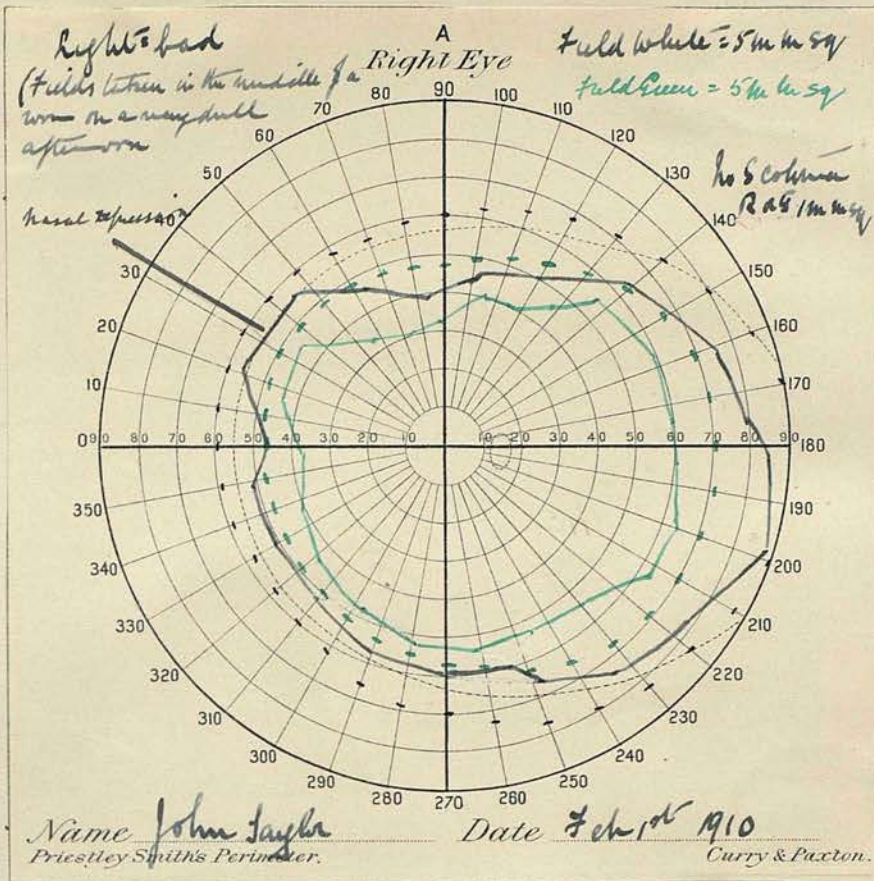 A
Right Eye
Light = bad
(Fields taken in the middle of a
on a very dull
afternoon
Nasal depression
Field White = 5 m m sq
Field Green = 5 m m sq
No Scotoma
1 m m sq
90 100 110 120 130 140 150 160 170 180 190 200 210 220 230 240 250 260 270 280 290 300 310 320 330 340 350 0 10 20 30 40 50 60 70 80
90 80 70 60 50 40 30 20 10
10 20 30 40 50 60 70 80 90
Name John Taylor Date Feb 1st 1910
Priestley Smith's Perimeter. Curry & Paxton.